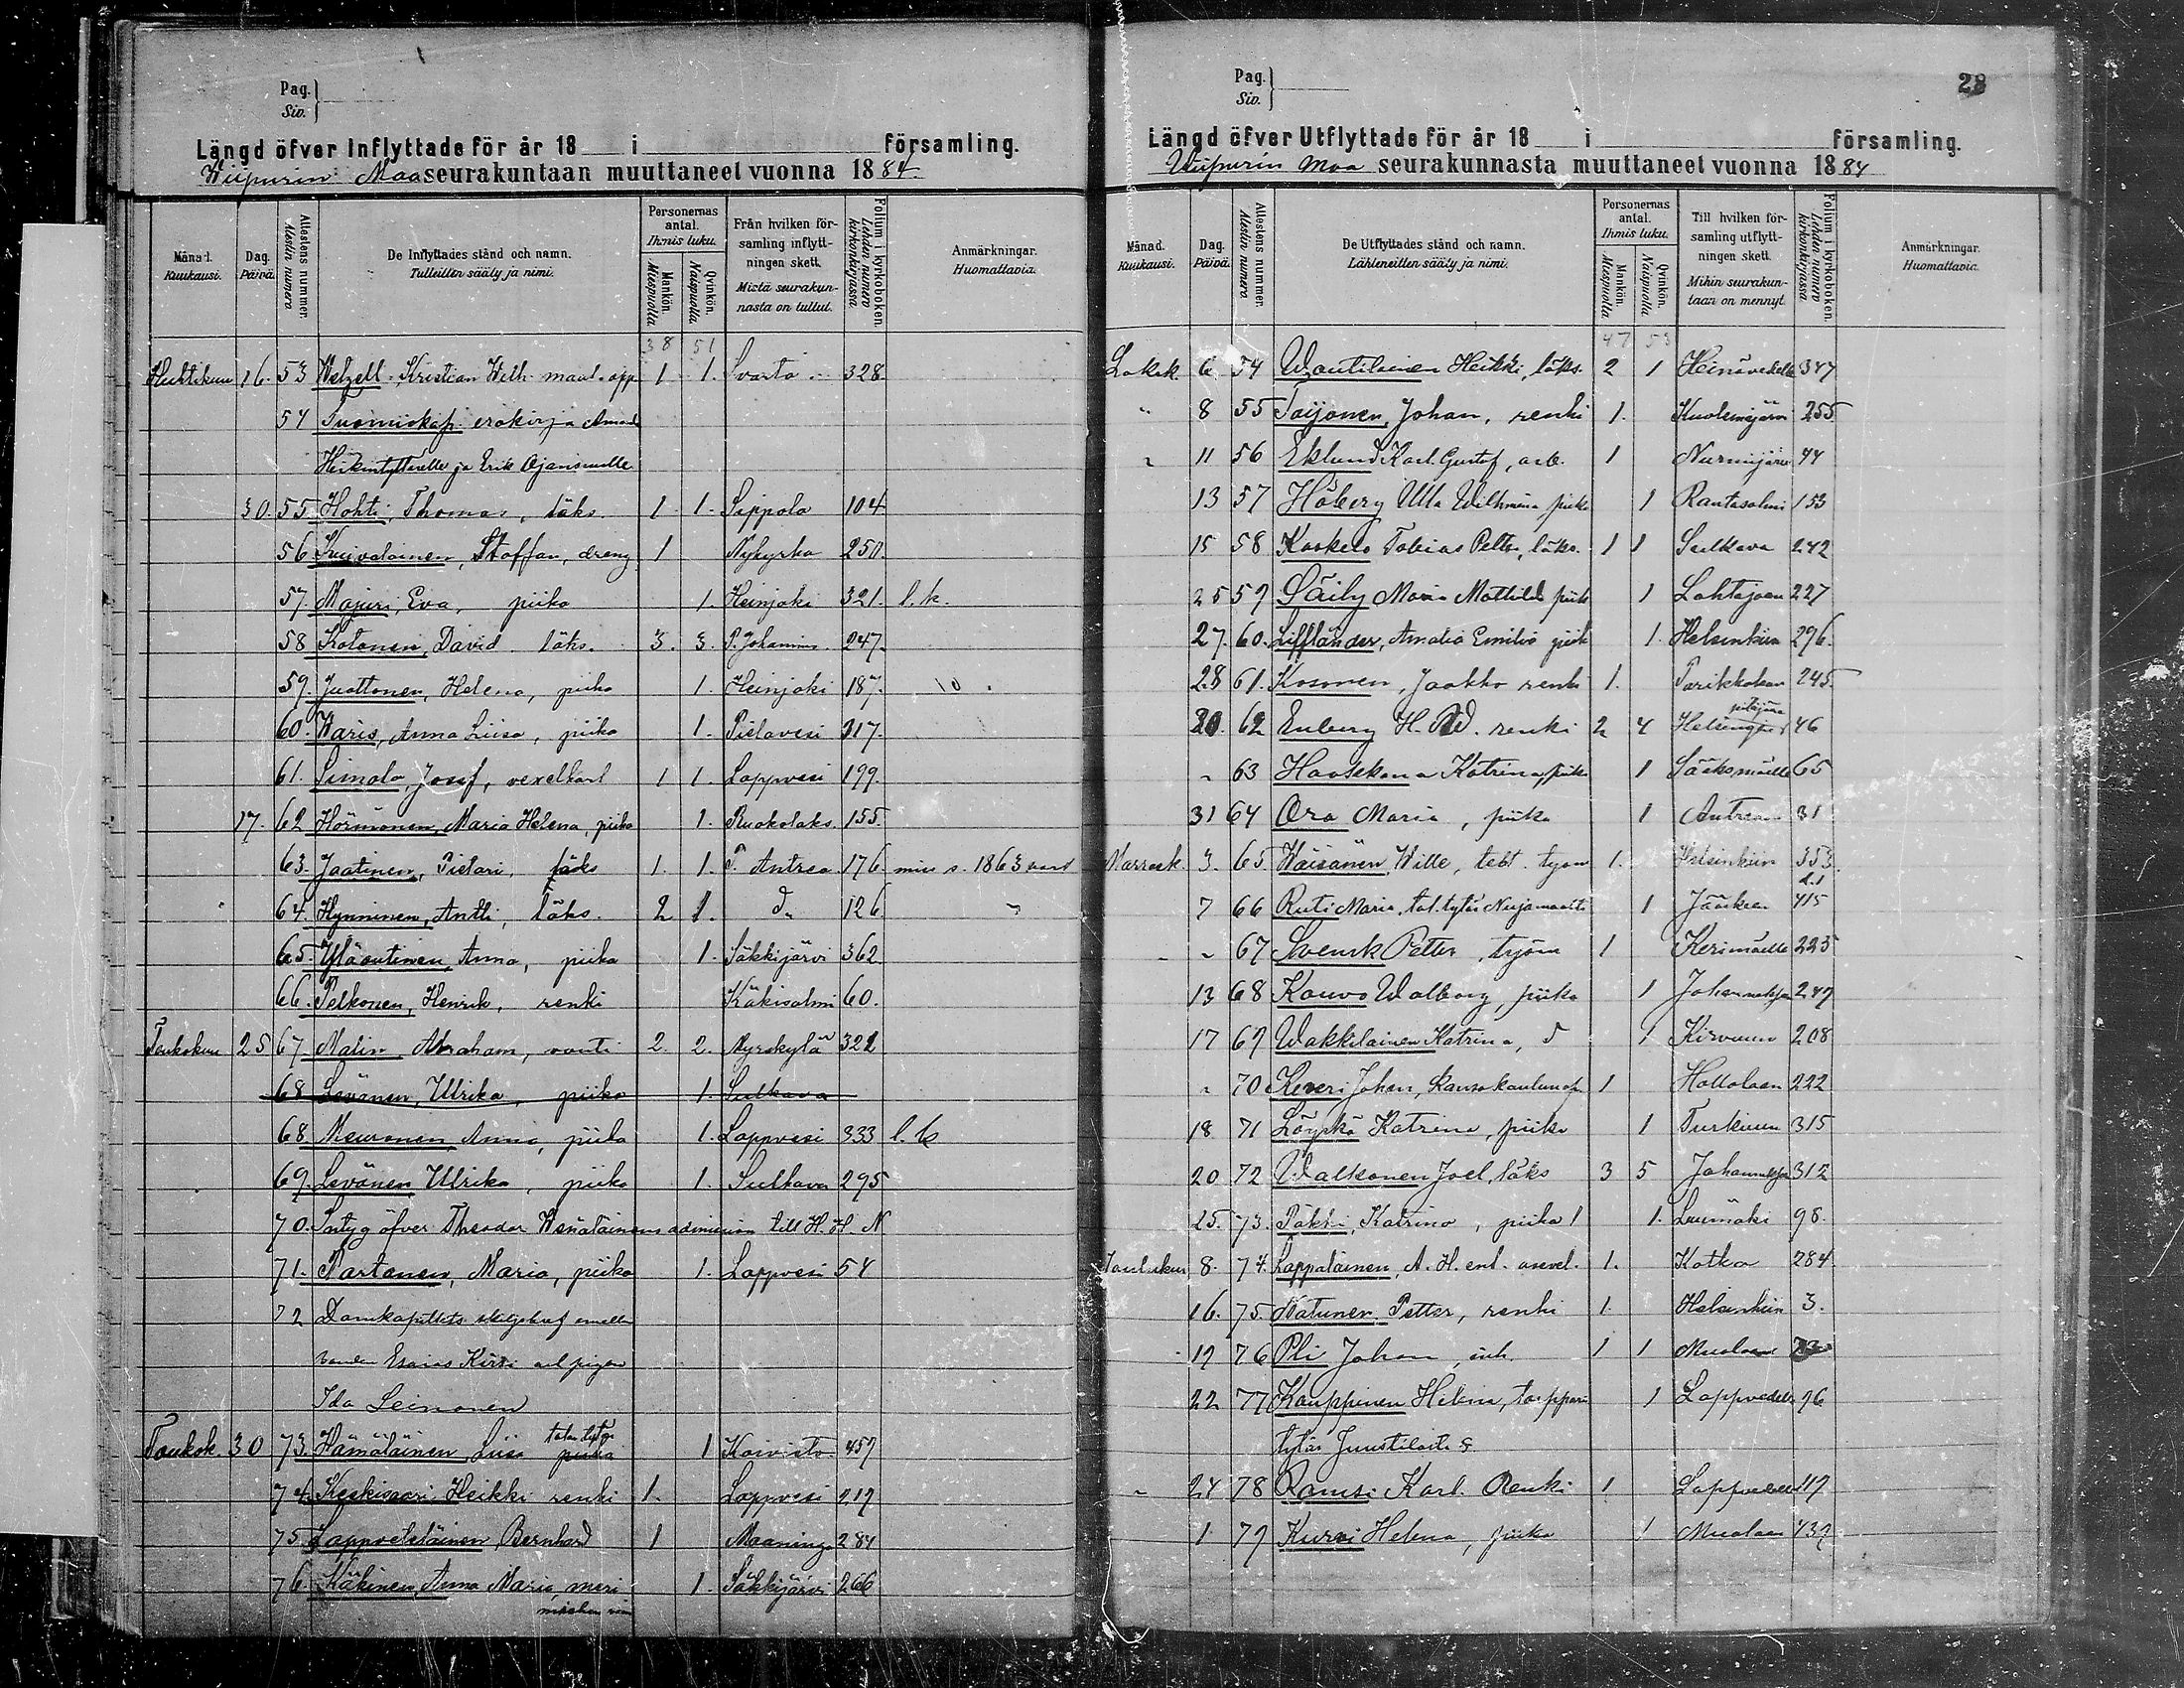 Pag.
Siv.
Längd öfver Inflyttade för år 18 i församling.
Wiipurin Maa seurakuntaan muuttaneet vuonna 1884.
Månad. Kuukausi. Dag. Päivä. Attestens nummer. Alestin numero De Inflyttades stånd och namn. Tulleitten sääty ja nimi. Personernas antal. Ihmis luku. Mankön. Miespuolia Qvinkön. Naispuolia Från hvilken församling inflyttningen skett. Mistä seurakunnasta on tullut. Folium i kyrkoboken. Lehden numero kirkonkirjassa. Anmärkningar. Huomattavia.
38 51
Huhtikuu 16. 53 Welzell Kristian Wilh. maat. opp 1 1. Svarto 328
54 Tuomiokap. erokirja
Heikintyttarelle ja Erik
30. 55. Hohti, Thomas, läks. 1 1. Sippola 104
56 Kuivalainen, Staffan, dreng 1 Nykyrka 250.
57. Majuri, Eva, piika 1. Heinjoki 321. l.k.
58 Kotonen, David läks. 3. 3. P. Johannis 247.
59. Juottonen, Helena, piika 1. Heinjoki 187.
60. Waris, Anna Liisa, piika 1. Pielavesi 317.
61. Simola, Josef, vexelkarl 1 1. Lappvesi 199.
17. 62 Hörmönen, Maria Helena, piika 1. Ruokolaks. 155.
63. Jaatinen, Pietari, läks 1. 1. P. Antrea 176 1863
64. Hynninen, Antti, läks. 2 1. d. 126
65. Yläoutinen, Anna, piika 1. Säkkijärvi 362
66. Pelkonen, Henrik, renki Käkisalmi 60.
Toukokuu 25 67. Malin Abraham, vouti 2. 2. Myrskylä 322
68 Levänen, Ullrika, piika 1. Sulkava
68. Meuronen Anna, piika 1. Lappvesi 333
69. Levänen Ullrika, piika 1. Sulkava 295
70. Intyg öfver Theodor admission till H. H. N
71. Partanen, Maria, piika 1. Lappvesi 54
72 Domkapitlets skiljobref emellan
Esaias Kirsi och pigan
Ida Leinonen
Toukok. 30 73. Hämäläinen, Liisa 1 Koivisto 459
74. Keskisaari Heikki renki 1. Lappvesi 219
75 Lappveteläinen Bernhard 1 Maaninga 284
76. Käkinen, Anna Maria meri 1. Säkkijärvi 266
Pag.
Siv.
28
Längd öfver Utflyttade för år 18 i församling.
Wiipurin maa seurakunnasta muuttaneet vuonna 1884
Månad. Kuukausi. Dag. Päivä. Attestens nummer. Alestin numero De Utflyttades stånd och namn. Lähteneitten sääty ja nimi. Personernas antal. Ihmis luku. Mankön. Miespuolia Qvinkön. Naispuolia Till hvilken församling utflyttningen skett. Mihin seurakuntaan on mennyt. Folium i kyrkoboken. Lehden numero kirkonkirjassa. Anmärkningar. Huomattavia.
47 53
Lokak. 6. 54 Wantilainen Heikki, läks. 2 1 Heinävedelle 347
" 8 55 Taijonen, Johan, renki 1. Kuolemajärvi 255
" 11 56 Eklund Karl Gustaf, arb. 1 Nurmijärvi 44
13 57 Höberg Ulla Wilhmina piika 1 Rantasalmi 153
15 58 Koskelo Tobias Petter, läks. 1 1 Sulkava 242
25 59 Säily Maria Mathilda piika 1 Lohtajaan 227
27. 60. Liffländer, Amalia Emilia piika 1. Helsinkiin 296.
28 61. Kosonen, Jaakko renki 1. Parikkalaan 245
62 Enberg H. W. renki 2 4 Helsingin pitäjään 46
" 63 Haaskana Katrina, piika 1 Sääksmäelle 65
31 64 Ora Maria, piika 1 Antreaan 31
Marrask. 3. 65. Wäisänen, Wille, teht. tyom 1. Helsinkiin 353.
7 66 Ruti Maria, tal. tytär Nuijamaalta 1 Jääskeen 415
" 67 Svensk Petter, työm 1 Kerimäelle 223
13 68 Kouvo Walborg, piika 1 Johanneksen 249
17 69 Wakkilainen Katrina, d 1 Kirvuun 208
" 70 Keveri Johan, kansakoulunop 1 Hollolaan 222
18 71 Löyskä Katrina, piika 1 Turkuun 315
20 72 Walkonen Joel, läks 3 5 Johanneksen 312
25. 73. Päkki, Katrina, piika 1 1. Luumäki 98.
Joulukuu 8. 74. Lappalainen, A. H. ent. asevel. 1. Kotka 284.
16. 75. Natunen, Petter, renki 1. Helsinkiin 3.
19 76 Pli Johan, suh. 1 1 Muolaan
22 77 Kauppinen Helena, torppari 1 Lappvedelle 96
tytär Juustilasta
" 24 78 Ramsi Karl. Renki 1 Lappvedelle 119
1 79 Kurvi Helena, piika 1 Muolaan 439